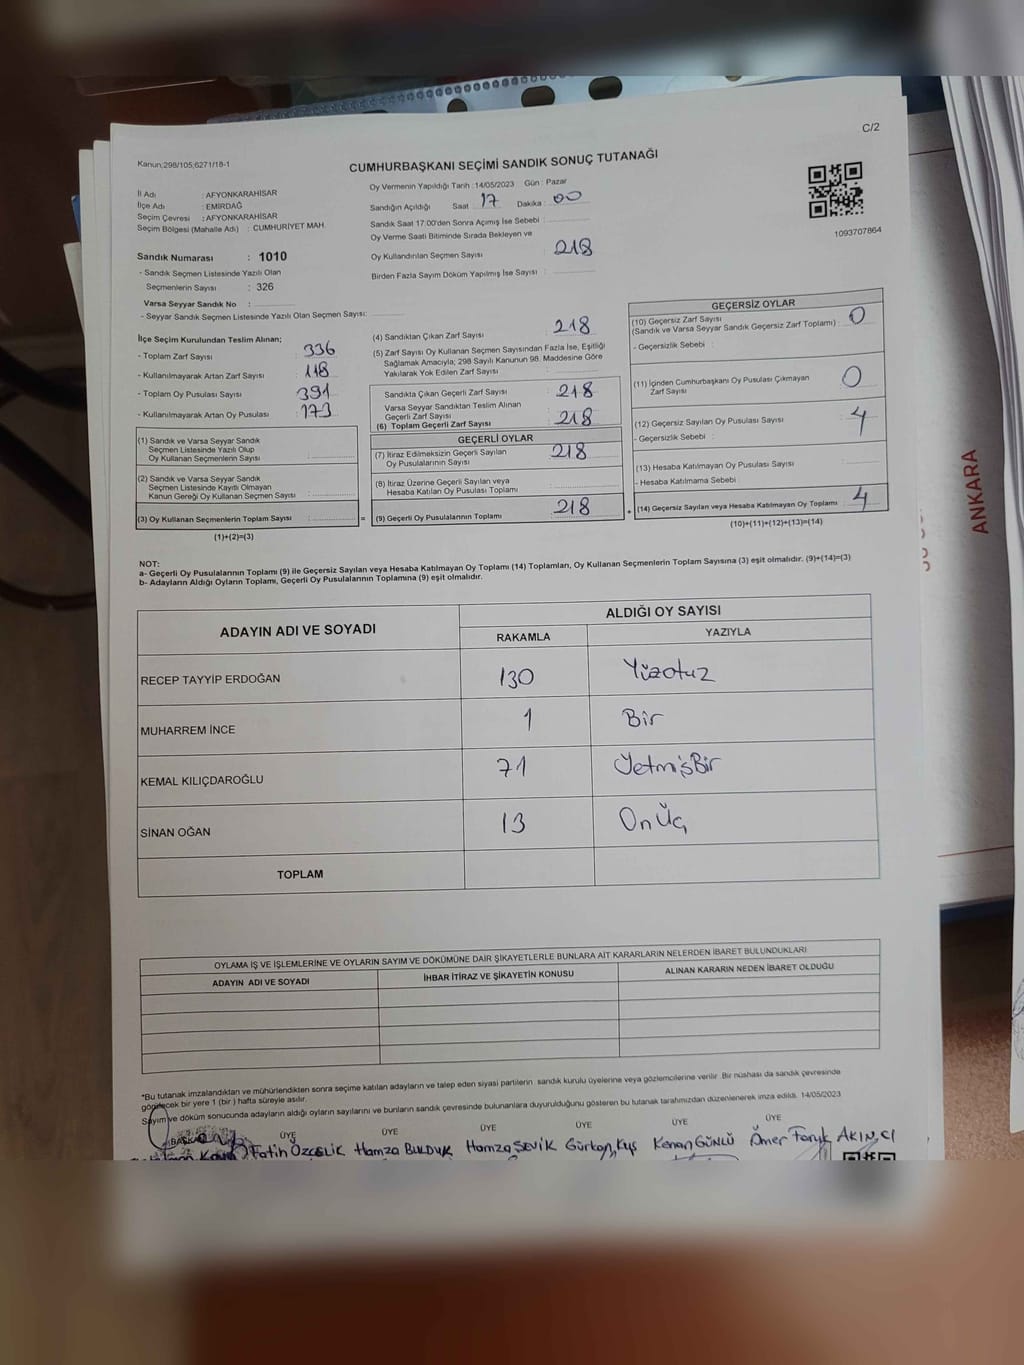 C/2
Kanun;298/105;6271/18-1
CUMHURBAŞKANI SEÇİMİ SANDIK SONUÇ TUTANAĞI
İl Adı : AFYONKARAHİSAR
İlçe Adı : EMİRDAĞ
Seçim Çevresi : AFYONKARAHİSAR
Seçim Bölgesi (Mahalle Adı) : CUMHURİYET MAH.
Oy Vermenin Yapıldığı Tarih :14/05/2023 Gün : Pazar
Sandığın Açıldığı Saat 17 Dakika : 00
Sandık Saat 17:00'den Sonra Açımış İse Sebebi :
Oy Verme Saati Bitiminde Sırada Bekleyen ve
Oy Kullandırılan Seçmen Sayısı 218
Birden Fazla Sayım Döküm Yapılmış İse Sayısı :
1093707864
Sandık Numarası : 1010
- Sandık Seçmen Listesinde Yazılı Olan
Seçmenlerin Sayısı : 326
Varsa Seyyar Sandık No :
- Seyyar Sandık Seçmen Listesinde Yazılı Olan Seçmen Sayısı:
İlçe Seçim Kurulundan Teslim Alınan;
- Toplam Zarf Sayısı 336
- Kullanılmayarak Artan Zarf Sayısı 118
- Toplam Oy Pusulası Sayısı 391
- Kullanılmayarak Artan Oy Pusulası 173
(1) Sandık ve Varsa Seyyar Sandık
Seçmen Listesinde Yazılı Olup
Oy Kullanan Seçmenlerin Sayısı :
(2) Sandık ve Varsa Seyyar Sandık
Seçmen Listesinde Kayıtlı Olmayan
Kanun Gereği Oy Kullanan Seçmen Sayısı :
(3) Oy Kullanan Seçmenlerin Toplam Sayısı : =
(1)+(2)=(3)
(4) Sandıktan Çıkan Zarf Sayısı 218
(5) Zarf Sayısı Oy Kullanan Seçmen Sayısından Fazla İse, Eşitliği
Sağlamak Amacıyla; 298 Sayılı Kanunun 98. Maddesine Göre
Yakılarak Yok Edilen Zarf Sayısı :
Sandıkta Çıkan Geçerli Zarf Sayısı : 218
Varsa Seyyar Sandıktan Teslim Alınan
Geçerli Zarf Sayısı :
(6) Toplam Geçerli Zarf Sayısı : 218
GEÇERLİ OYLAR
(7) İtiraz Edilmeksizin Geçerli Sayılan
Oy Pusulalarının Sayısı : 218
(8) İtiraz Üzerine Geçerli Sayılan veya
Hesaba Katılan Oy Pusulası Toplamı :
(9) Geçerli Oy Pusulalarının Toplamı 218 +
GEÇERSİZ OYLAR
(10) Geçersiz Zarf Sayısı
(Sandık ve Varsa Seyyar Sandık Geçersiz Zarf Toplamı) : 0
- Geçersizlik Sebebi :
(11) İçinden Cumhurbaşkanı Oy Pusulası Çıkmayan
Zarf Sayısı 0
(12) Geçersiz Sayılan Oy Pusulası Sayısı : 4
- Geçersizlik Sebebi :
(13) Hesaba Katılmayan Oy Pusulası Sayısı :
- Hesaba Katılmama Sebebi :
(14) Geçersiz Sayılan veya Hesaba Katılmayan Oy Toplamı : 4
(10)+(11)+(12)+(13)=(14)
NOT:
a- Geçerli Oy Pusulalarının Toplamı (9) ile Geçersiz Sayılan veya Hesaba Katılmayan Oy Toplamı (14) Toplamları, Oy Kullanan Seçmenlerin Toplam Sayısına (3) eşit olmalıdır. (9)+(14)=(3)
b- Adayların Aldığı Oyların Toplamı, Geçerli Oy Pusulalarının Toplamına (9) eşit olmalıdır.
ADAYIN ADI VE SOYADI ALDIĞI OY SAYISI
RAKAMLA YAZIYLA
RECEP TAYYİP ERDOĞAN 130 Yüzotuz
MUHARREM İNCE 1 Bir
KEMAL KILIÇDAROĞLU 71 YetmişBir
SİNAN OĞAN 13 On Üç
TOPLAM
OYLAMA İŞ VE İŞLEMLERİNE VE OYLARIN SAYIM VE DÖKÜMÜNE DAİR ŞİKAYETLERLE BUNLARA AİT KARARLARIN NELERDEN İBARET BULUNDUKLARI
ADAYIN ADI VE SOYADI İHBAR İTİRAZ VE ŞİKAYETİN KONUSU ALINAN KARARIN NEDEN İBARET OLDUĞU
*Bu tutanak imzalandıktan ve mühürlendikten sonra seçime katılan adayların ve talep eden siyasi partilerin sandık kurulu üyelerine veya gözlemcilerine verilir. Bir nüshası da sandık çevresinde
görülecek bir yere 1 (bir) hafta süreyle asılır.
Sayım ve döküm sonucunda adayların aldığı oyların sayılarını ve bunların sandık çevresinde bulunanlara duyurulduğunu gösteren bu tutanak tarafımızdan düzenlenerek imza edildi. 14/05/2023
BAŞKAN ÜYE ÜYE ÜYE ÜYE ÜYE ÜYE
Fatih ÖZÇELİK Hamza BULDUK Hamza SEVİK Gürkan Kuş Kenan GÜNLÜ Ömer Faruk AKINCI
ANKARA